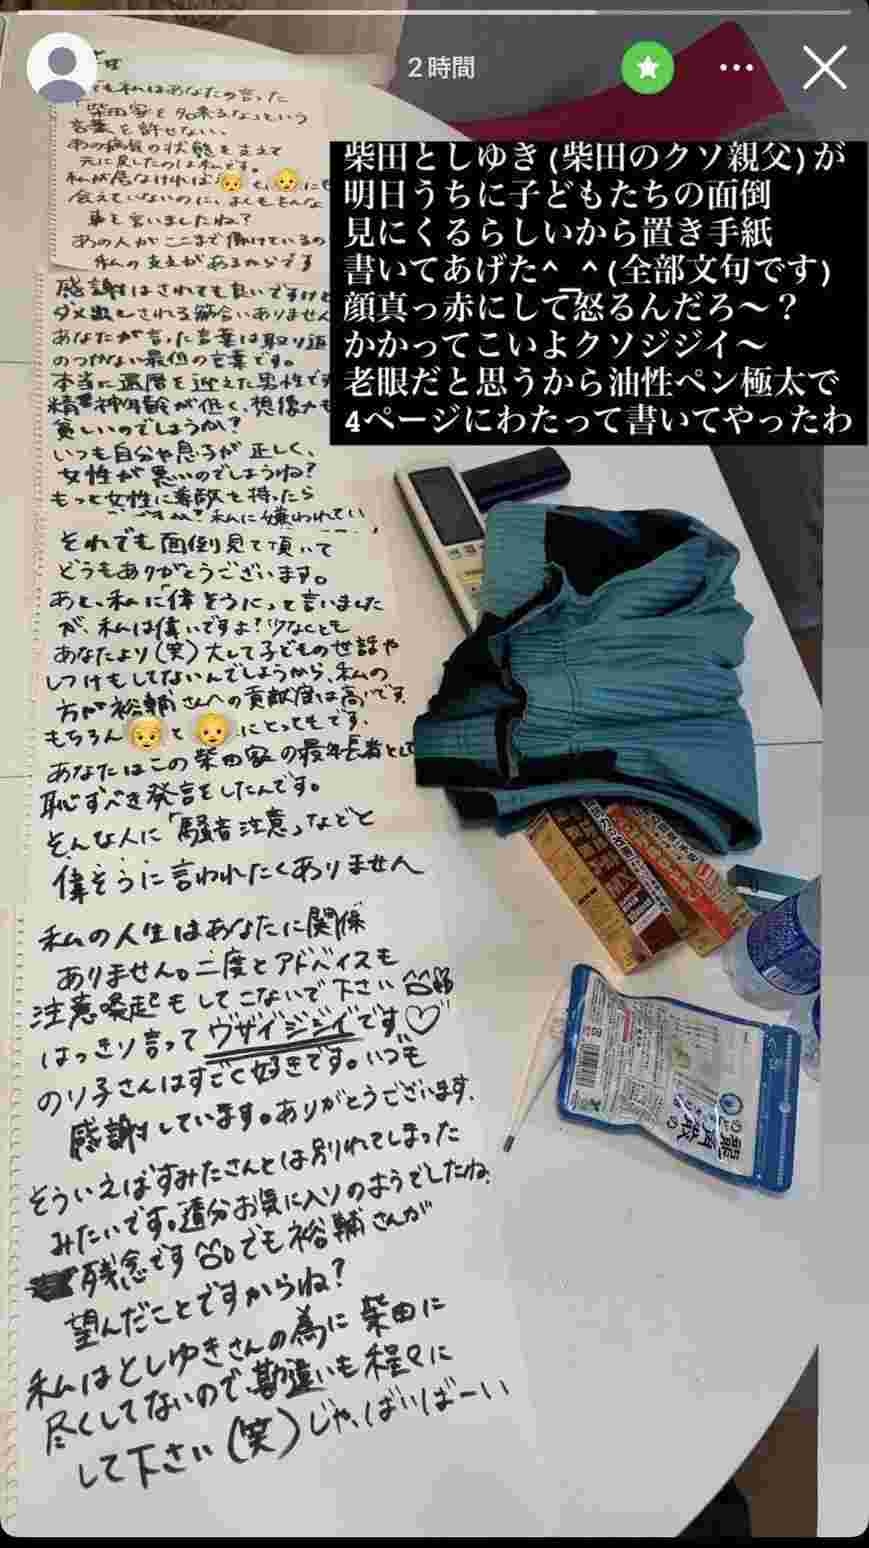 2時間
柴田としゆき(柴田のクソ親父)が
明日うちに子どもたちの面倒
見にくるらしいから置き手紙
書いてあげた^_^(全部文句です)
顔真っ赤にして怒るんだろ〜？
かかってこいよクソジジイ〜
老眼だと思うから油性ペン極太で
4ページにわたって書いてやったわ
でも私はあなたの言った
「柴田家を名乗るな」という
言葉を許せない、
あの病気の状態を支えて
元に戻したのは私です。
私が居なければ👴と、👶にも
会えていないのに、よくもそんな
事を言いましたね？
あの人がここまで働けているの
私の支えがあるからです
感謝はされても良いですけど
ダメ出しされる筋合いありません
あなたが言った言葉は取り返
のつかない最低の言葉です。
本当に還暦を迎えた男性です
精神年齢が低く、想像力も
貧しいのでしょうか？
いつも自分や息子が正しく、
女性が悪いのでしょうね？
もっと女性に尊敬を持ったら
私に嫌われてい
それでも面倒見て頂いて
どうもありがとうございます。
あと、私に「偉そうに」って言いました
が、私は偉いですよ！少なくとも
あなたより(笑)大して子どもの世話や
しつけもしてないんでしょうから、私の
方が裕輔さんへの貢献度は高いです。
もちろん👴と👶にとってもです。
あなたはこの柴田家の最年長者として
恥ずべき発言をしたんです。
そんな人に「騒音注意」などと
偉そうに言われたくありません
私の人生はあなたに関係
ありません。二度とアドバイスも
注意喚起もしてこないで下さい
はっきり言ってウザイジジイです♡
のり子さんはすごく好きです。いつも
感謝しています。ありがとうございます。
そういえばすみたさんとは別れてしまった
みたいです。随分お気に入りのようでしたね、
残念です でも裕輔さんが
望んだことですからね？
私はとしゆきさんの為に柴田に
尽くしてないので、勘違いも程々に
して下さい(笑)じゃ、ばいばーい
龍角散
のど